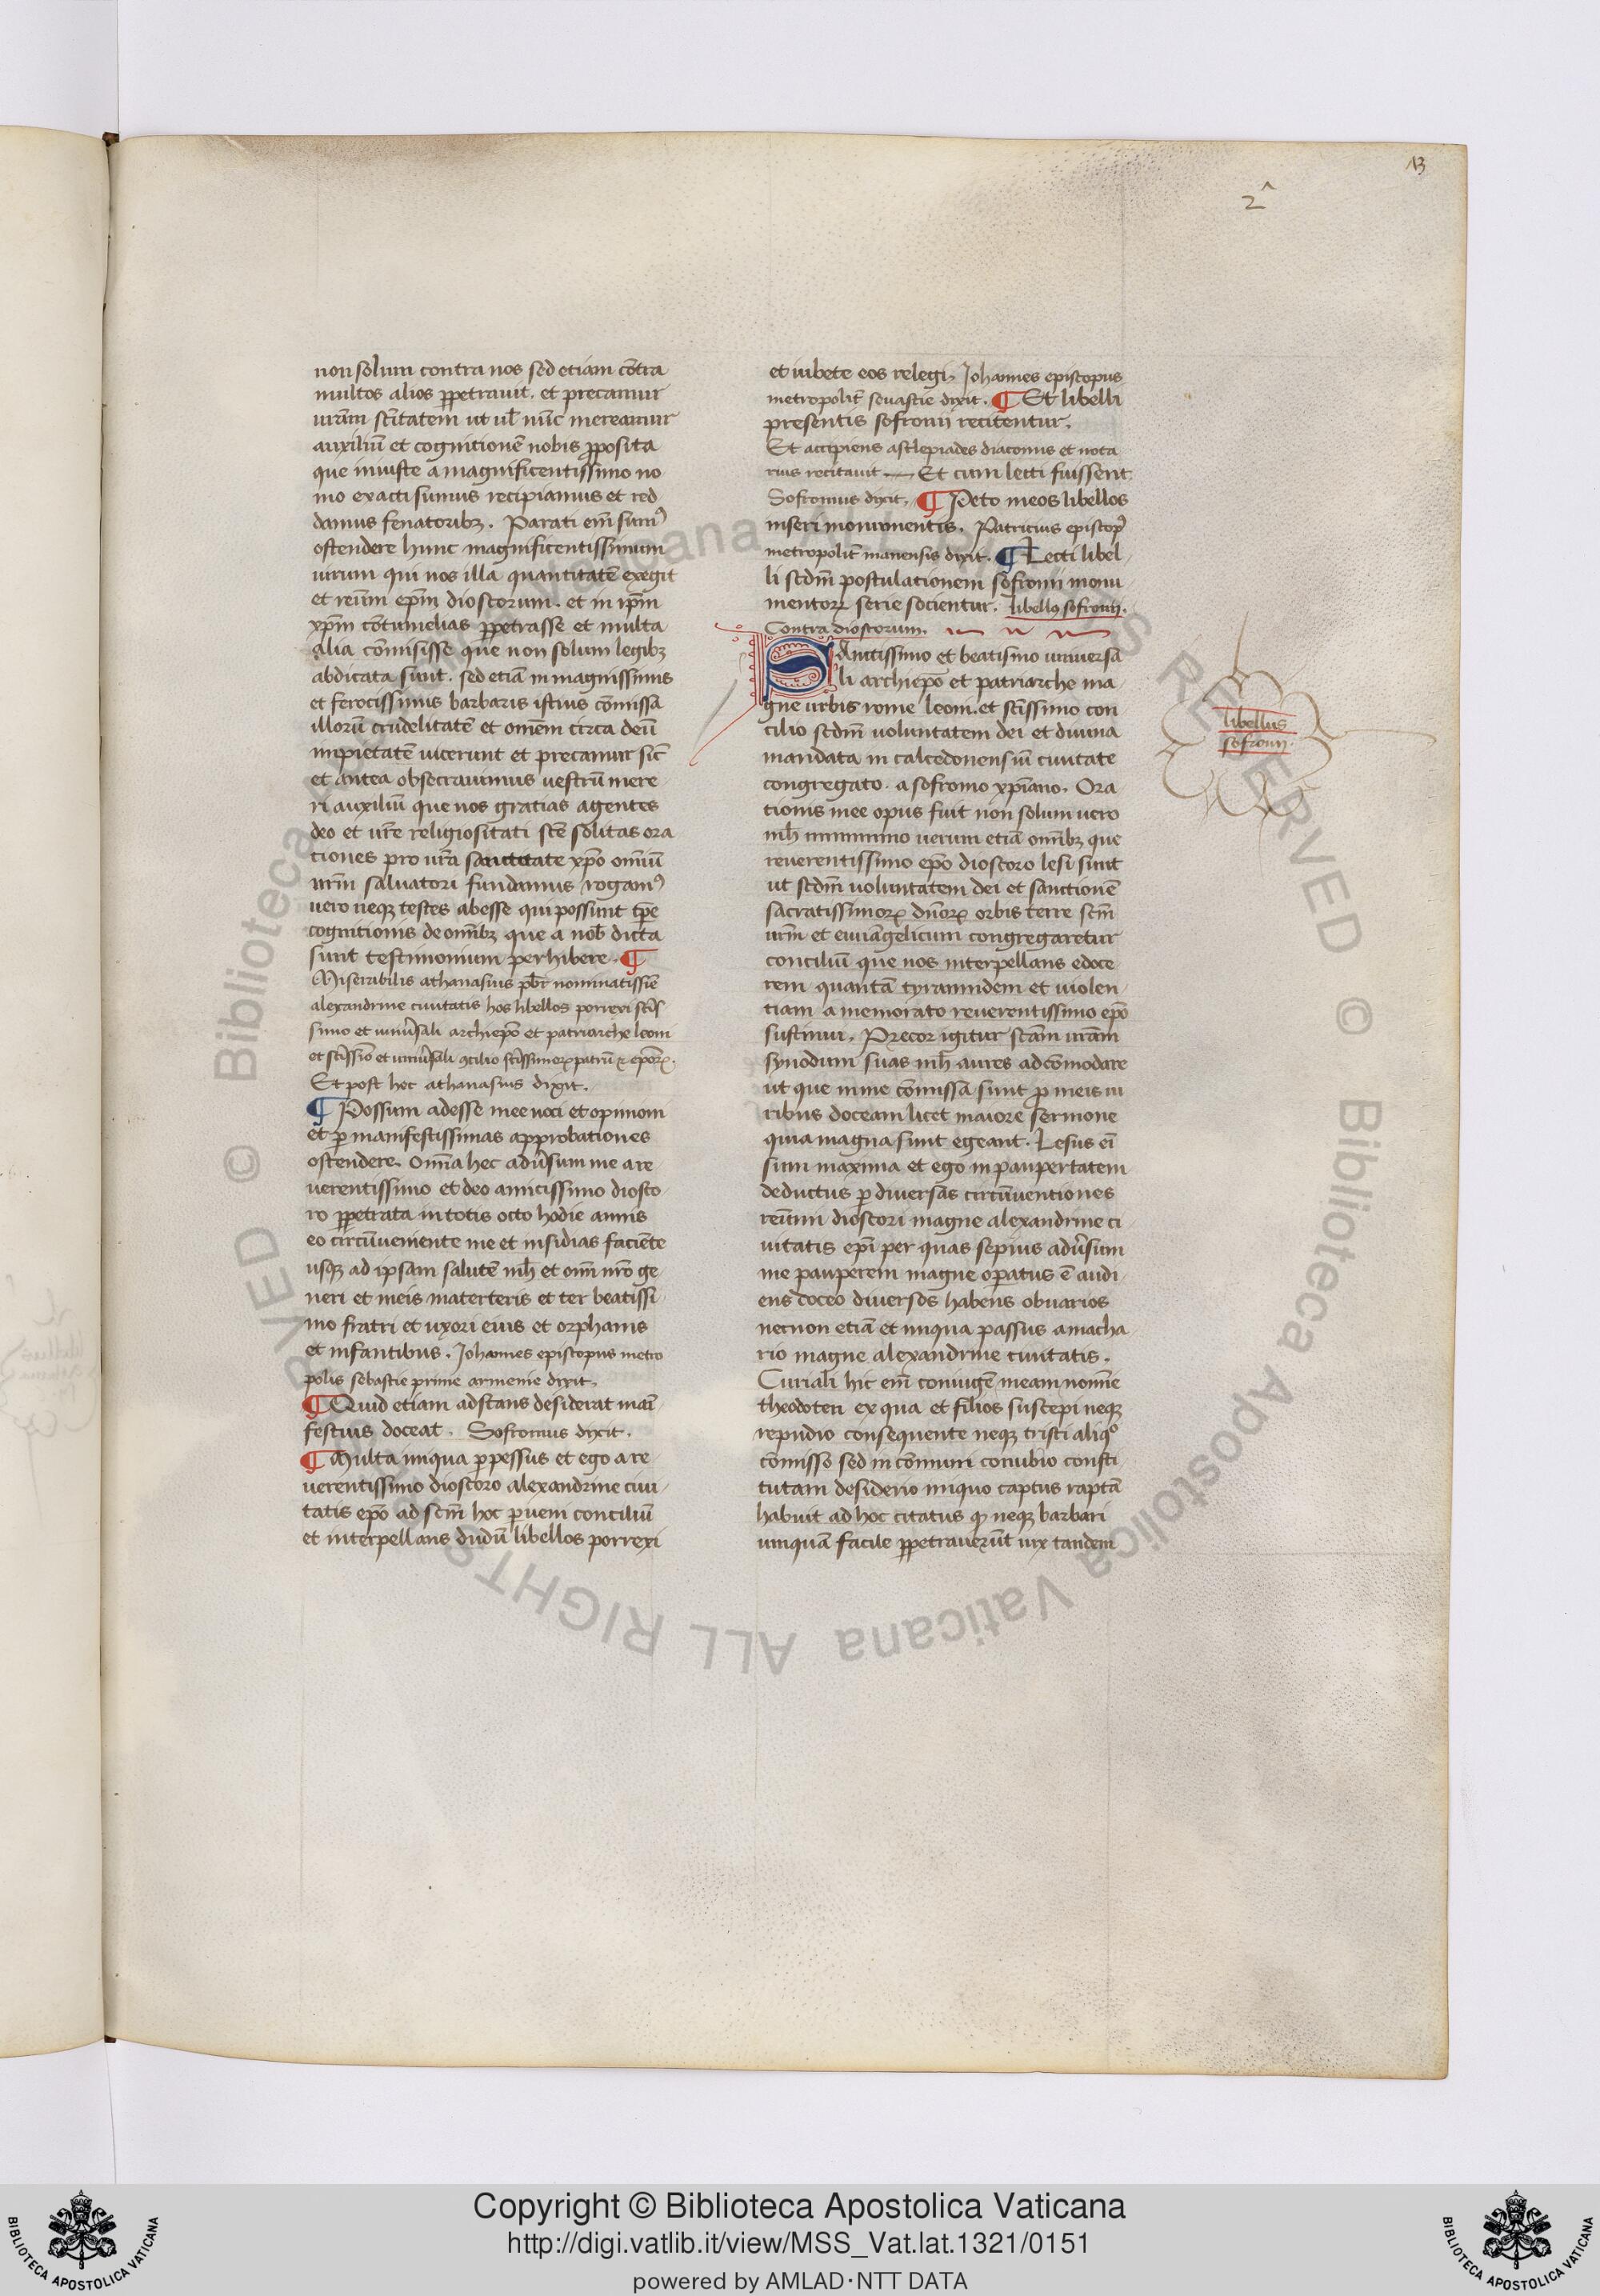 13
2^
non solum contra nos sed etiam cōtra
multos alios ꝑpetrauit. et precamur
urām scītatem ut ul̄ nūc mereamur
auxiliū et cognitionē nobis ꝓposita
que iniuste a magnificentissimo no
mo exacti sumus recipiamus et red
damus fenatoribꝫ. Parati em̄ sumꝰ
ostendere hunc magnificentissimum
uirum qui nos illa quantitatē exegit
et reūm ep̄m dioscorum. et in ip̄m
xp̄m cōtumelias ꝑpetrasse et multa
alia cōmisisse que non solum legibꝫ
abdicata sunt. sed etiā in magnissimis
et ferocissimis barbaris istius cōmissa
illorū crudelitatē et omēm circa deū
impietatē uicerunt et precamur sic̄
et antea obsecrauimus uestrū mere
ri auxiliū que nos gratias agentes
deo et ur̄e religiositati sc̄e solitas ora
tiones pro ur̄a sanctitate xp̄o omīū
nr̄m saluatori fundamus rogamꝰ
uero neqꝫ testes abesse qui possunt tp̄e
cognitionis de om̄ibꝫ que a nob̄ dicta
sunt testimonium perhibere. ¶
Miserabilis athanasius pb̄r nominatissīe
alexandrine ciuitatis hos libellos porrexi sc̄is
simo et uniūsali archiep̄o et patriarche leoni
et sc̄issīo et uniūsali ꝯcilio sc̄issimoꝝ patrū ⁊ ep̄oꝝ.
Et post hec athanasius dixit.
¶ Possum adesse mee uoci et opinioni
et ꝑ manifestissimas approbationes
ostendere. Om̄ia hec adūsum me a re
uerentissimo et deo amicissimo diosco
ro ꝑpetrata in totis octo hodie annis
eo circūueniente me et insidias faciēte
usqꝫ ad ipsam salutē mh̄ et om̄i nr̄o ge
neri et meis materteris et ter beatissi
mo fratri et uxori eius et orphanis
et infantibus. Johannes episcopus metro
polis sebastie prime armenie dixit.
¶ Quid etiam adstans desiderat mani
festius doceat. Sofronius dixit.
¶ Multa iniqua ꝑpessus et ego a re
uerentissimo dioscoro alexandrine ciui
tatis ep̄o ad sc̄m hoc ꝑueni conciliū
et interpellans dudū libellos porrexi
et iubete eos relegi. Johannes episcopus
metropolit̄ seuastie dixit. ¶ Et libelli
presentis sofronij recitentur.
Et accipiens asclepiades diaconus et nota
rius recitauit — Et cum lecti fuissent
Sofronius dixit. ¶ Peto meos libellos
inseri monumentis. Patricius episcopꝰ
metropolit̄ tianensis dixit. ¶ Lecti libel
li sc̄dm̄ postulationem sofronij monu
mentoꝝ serie socientur. libellꝰ sofronij.
Contra dioscorum.
SAnctissimo et beatissimo uniuersa
li archiep̄o et patriarche ma
gne urbis rome leoni. et sc̄issimo con
cilio sc̄dm̄ uoluntatem dei et diuina
mandata in calcedonensiū ciuitate
congregato. a sofronio xp̄iano. Ora
tionis mee opus fuit non solum uero
mh̄ minimo uerum etiā om̄ibꝫ que
reuerentissimo ep̄o dioscoro lesi sunt
ut sc̄dm̄ uoluntatem dei et sanctionē
sacratissimoꝝ dn̄oꝝ orbis terre sc̄m
ur̄m et euuāgelicum congregaretur
conciliū que nos interpellans edoce
rem quantā tyrannidem et uiolen
tiam a memorato reuerentissimo ep̄o
sustinui. Precor igitur sc̄am ur̄am
synodum suas mh̄ aures adcōmodare
ut que in me cōmissa sunt ꝓ meis ui
ribus doceam licet maiore sermone
quia magna sunt egeant. Lesus ei
sum maxima et ego in paupertatem
deductus ꝑ diuersas circūuentiones
reūmi dioscori magne alexandrine ci
uitatis ep̄i per quas sepius adūsum
me pauperem magne oꝑatus ē audi
ens doceo diuersos habens obuarios
necnon etiā et iniqua passus a macha
rio magne alexandrine ciuitatis.
Curiali hic em̄ coniugē meam nomīe
theodoten ex qua et filios suscepi neqꝫ
repudio consequente neqꝫ tristi aliqº
cōmisso sed in cōmuni conubio consti
tutam desiderio iniquo captus raptā
habuit ad hoc citatus qꝫ neqꝫ barbari
umquā facile ꝑpetrauerūt uix tandem
libellus
sofronij.
Copyright © Biblioteca Apostolica Vaticana
http://digi.vatlib.it/view/MSS_Vat.lat.1321/0151
powered by AMLAD·NTT DATA
BIBLIOTECA APOSTOLICA VATICANA
BIBLIOTECA APOSTOLICA VATICANA